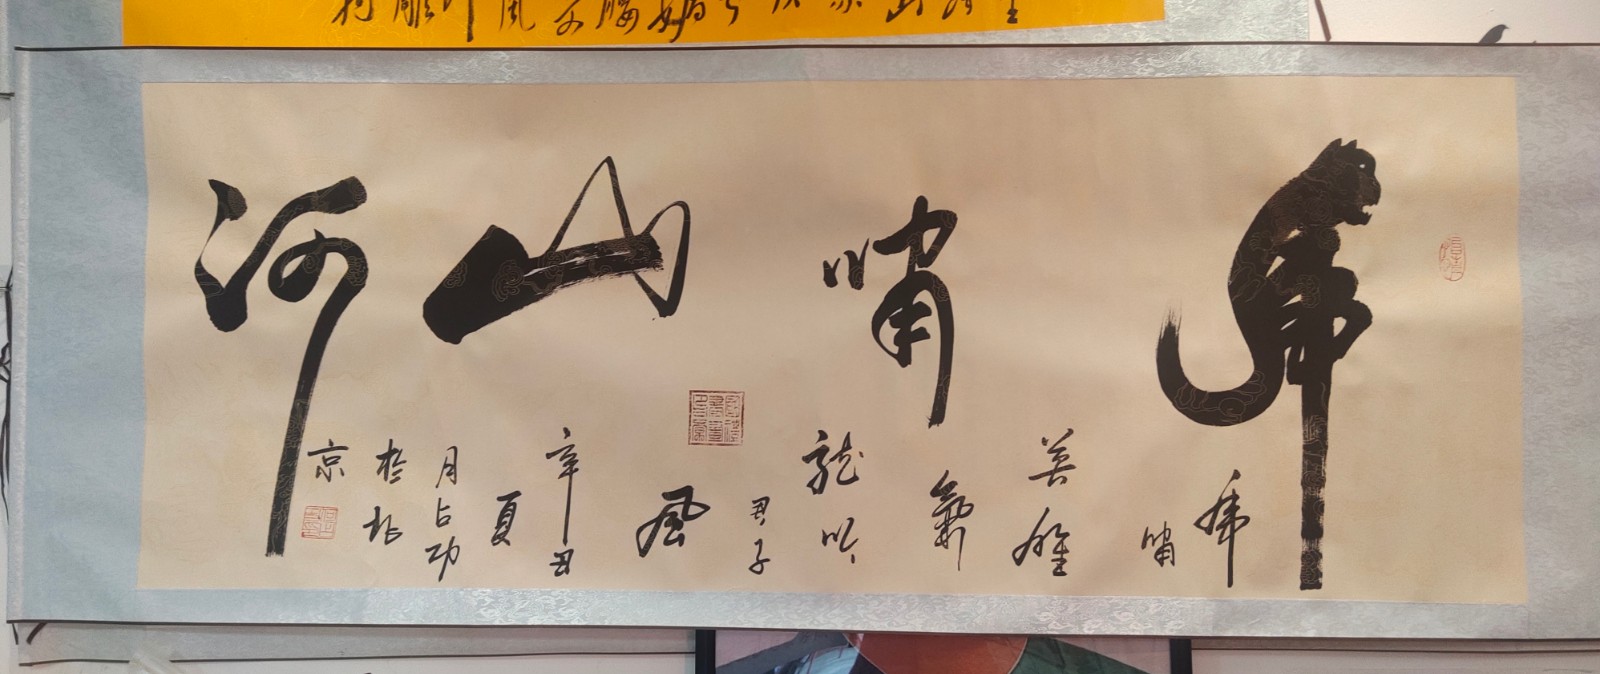 虎啸山河
虎啸
英雄
氣
龍吟
君子
風
辛丑
夏
月占功
於北
京